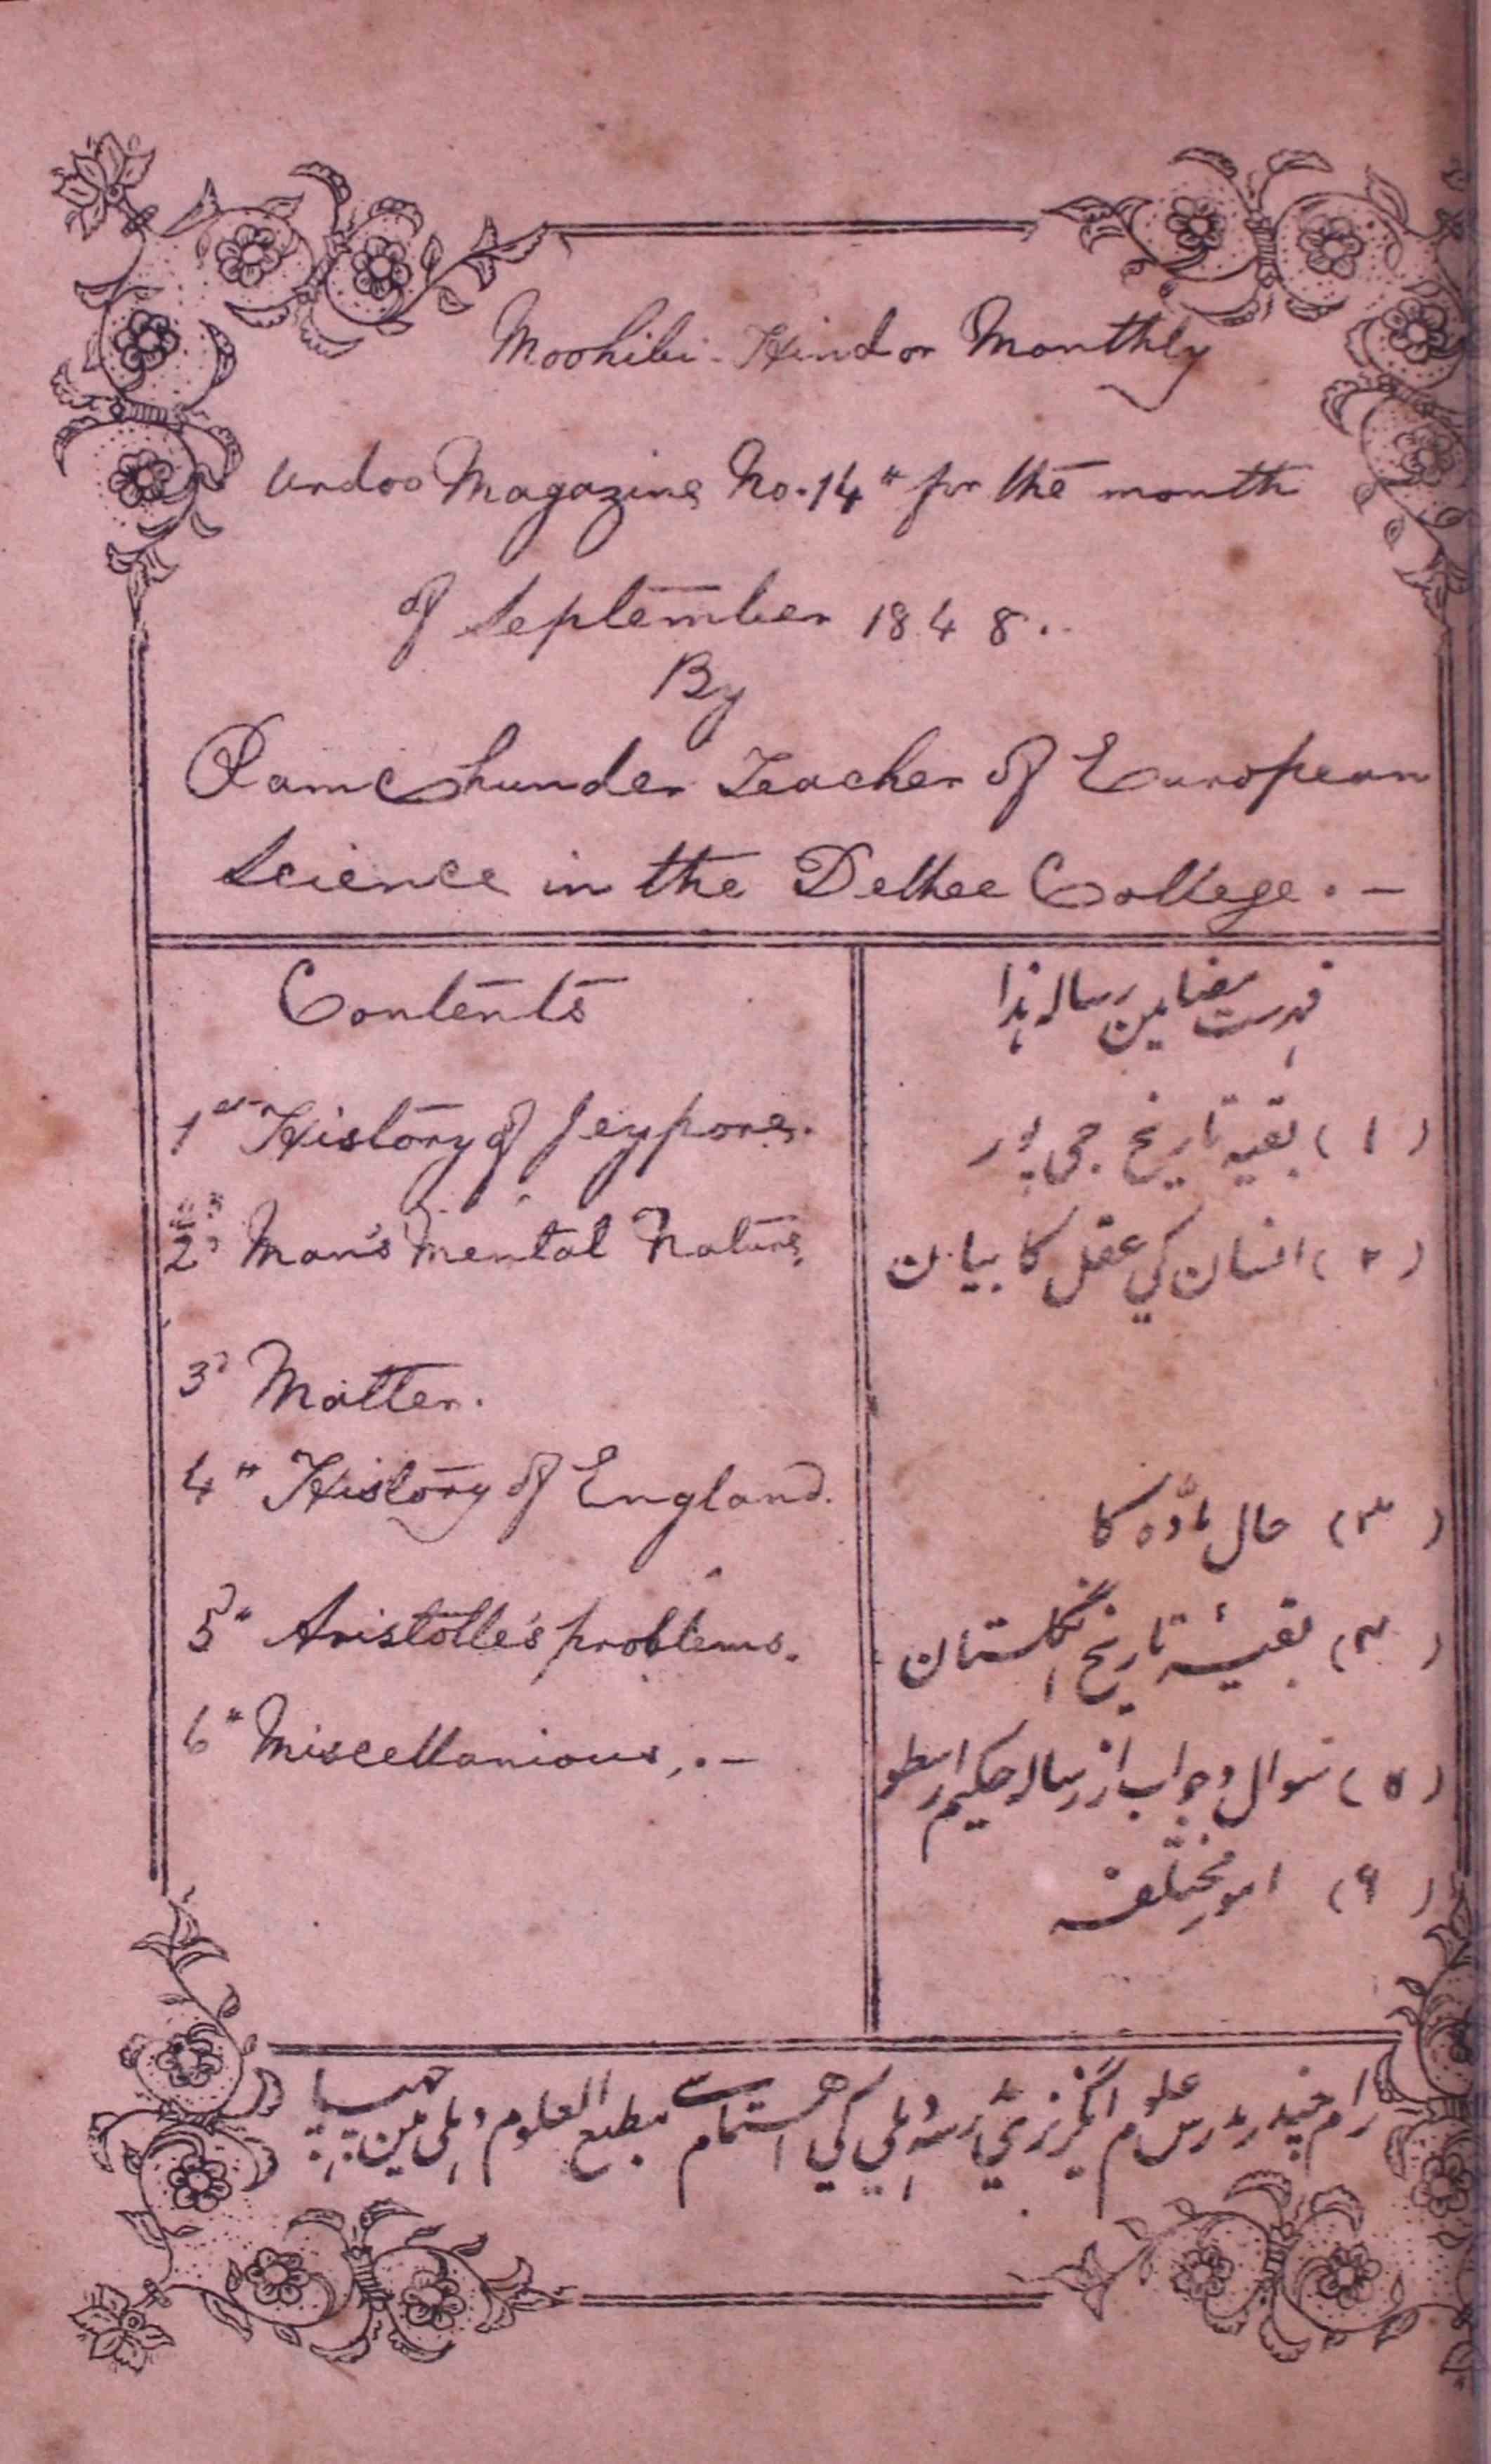 Moohibi-Hind or Monthly
Urdoo Magazine No. 14th for the month
of September 1848.
By
Ramchunder Teacher of European
Science in the Delhee College. —
Contents
1st History of Jeypore.
2d Man's Mental Nature,
3d Matter.
4th History of England.
5th Aristotle's problems.
6th Miscellanious, . —
فہرست مضامین رسالہ ہذا
(۱) بقیہ تاریخ جی پور
(۲) انسان کي عقل کا بیان
(۳) حال مادّہ کا
(۴) بقیۂ تاریخ انگلستان
(۵) سوال وجواب از رسالہ حکیم ارسطو
(۶) امور مختلفہ
رام چندر مدرس علوم انگریزي مدرسہ دہلي کي اہتمام سے مطبع العلوم دہلی مین چھپا